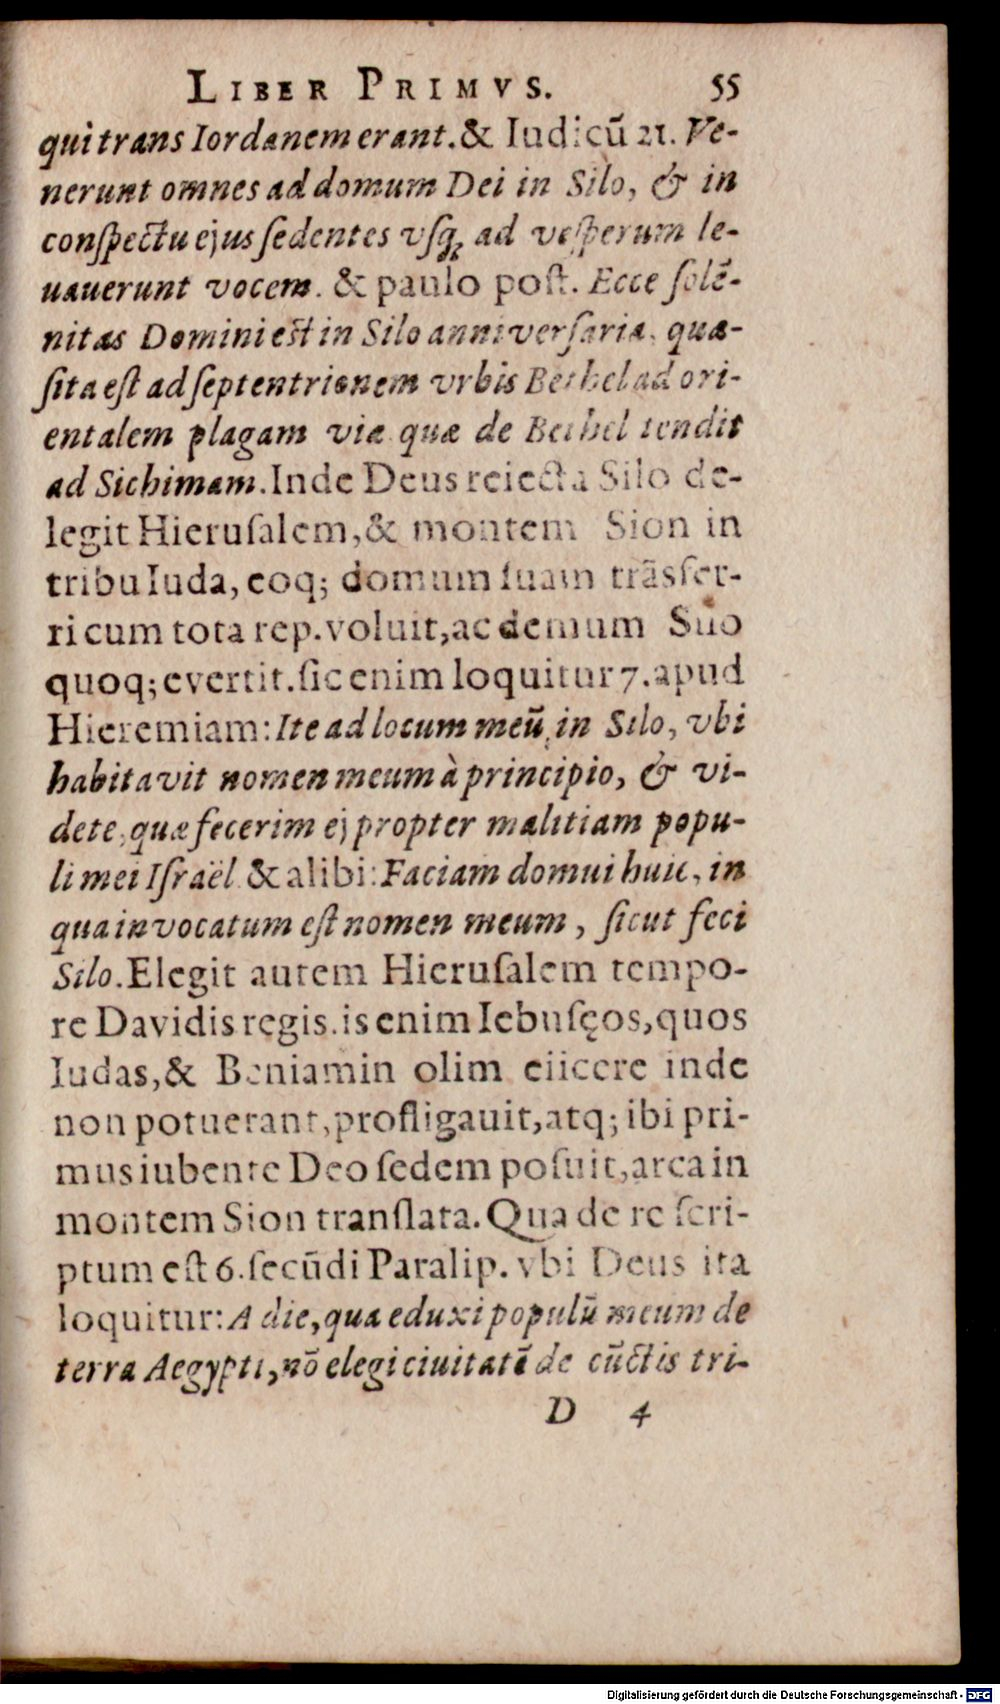 LIBER PRIMVS. 55
qui trans Iordanem erant. & Iudicũ 21. Ve-
nerunt omnes ad domum Dei in Silo, & in
conſpectu ejus ſedentes vſq; ad veſperum le-
uauerunt vocem. & paulo poſt. Ecce ſolẽ-
nitas Domini eſt in Silo anniverſaria, quæ
ſita eſt ad ſeptentrionem vrbis Bethel ad ori-
entalem plagam viæ quæ de Bethel tendit
ad Sichimam. Inde Deus reiecta Silo de-
legit Hieruſalem, & montem Sion in
tribu Iuda, eoq; domum ſuam trãsfer-
ri cum tota rep. voluit, ac demum Silo
quoq; evertit. ſic enim loquitur 7. apud
Hieremiam: Ite ad locum meũ in Silo, vbi
habitavit nomen meum à principio, & vi-
dete, quæ fecerim ej propter malitiam popu-
li mei Iſraël & alibi: Faciam domui huic, in
qua invocatum eſt nomen meum, ſicut feci
Silo. Elegit autem Hieruſalem tempo-
re Davidis regis. is enim Iebuſęos, quos
Iudas, & Beniamin olim eiicere inde
non potuerant, profligauit, atq; ibi pri-
mus iubente Deo ſedem poſuit, arca in
montem Sion tranſlata. Qua de re ſcri-
ptum eſt 6. ſecũdi Paralip. vbi Deus ita
loquitur: A die, qua eduxi populũ meum de
terra Aegypti, nõ elegi ciuitatẽ de cũctis tri-
D 4
Digitalisierung gefördert durch die Deutsche Forschungsgemeinschaft - DFG